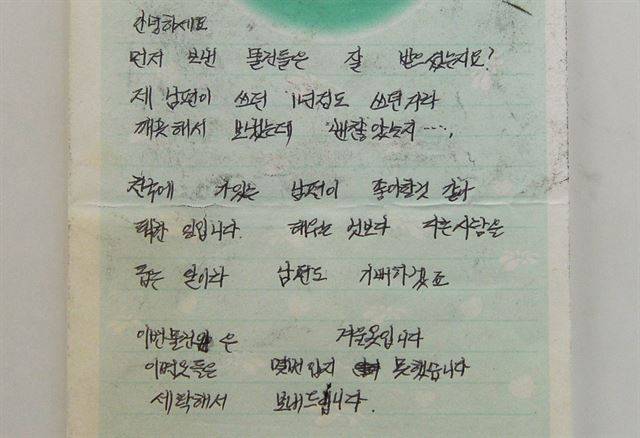 안녕하세요
먼저 보낸 물건들은 잘 받으셨는지요?
제 남편이 쓰던 1년정도 쓰던거라
깨끗해서 보냈는데 괜찮았는지....
천국에 가있는 남편이 좋아할것 같아
택한 일입니다. 태우는 것보다 다른사람을
돕는 일이라 남편도 기뻐하겠죠
이번물건은 겨울옷입니다
이번옷들은 몇번입지 못했습니다
세탁해서 보내드립니다.